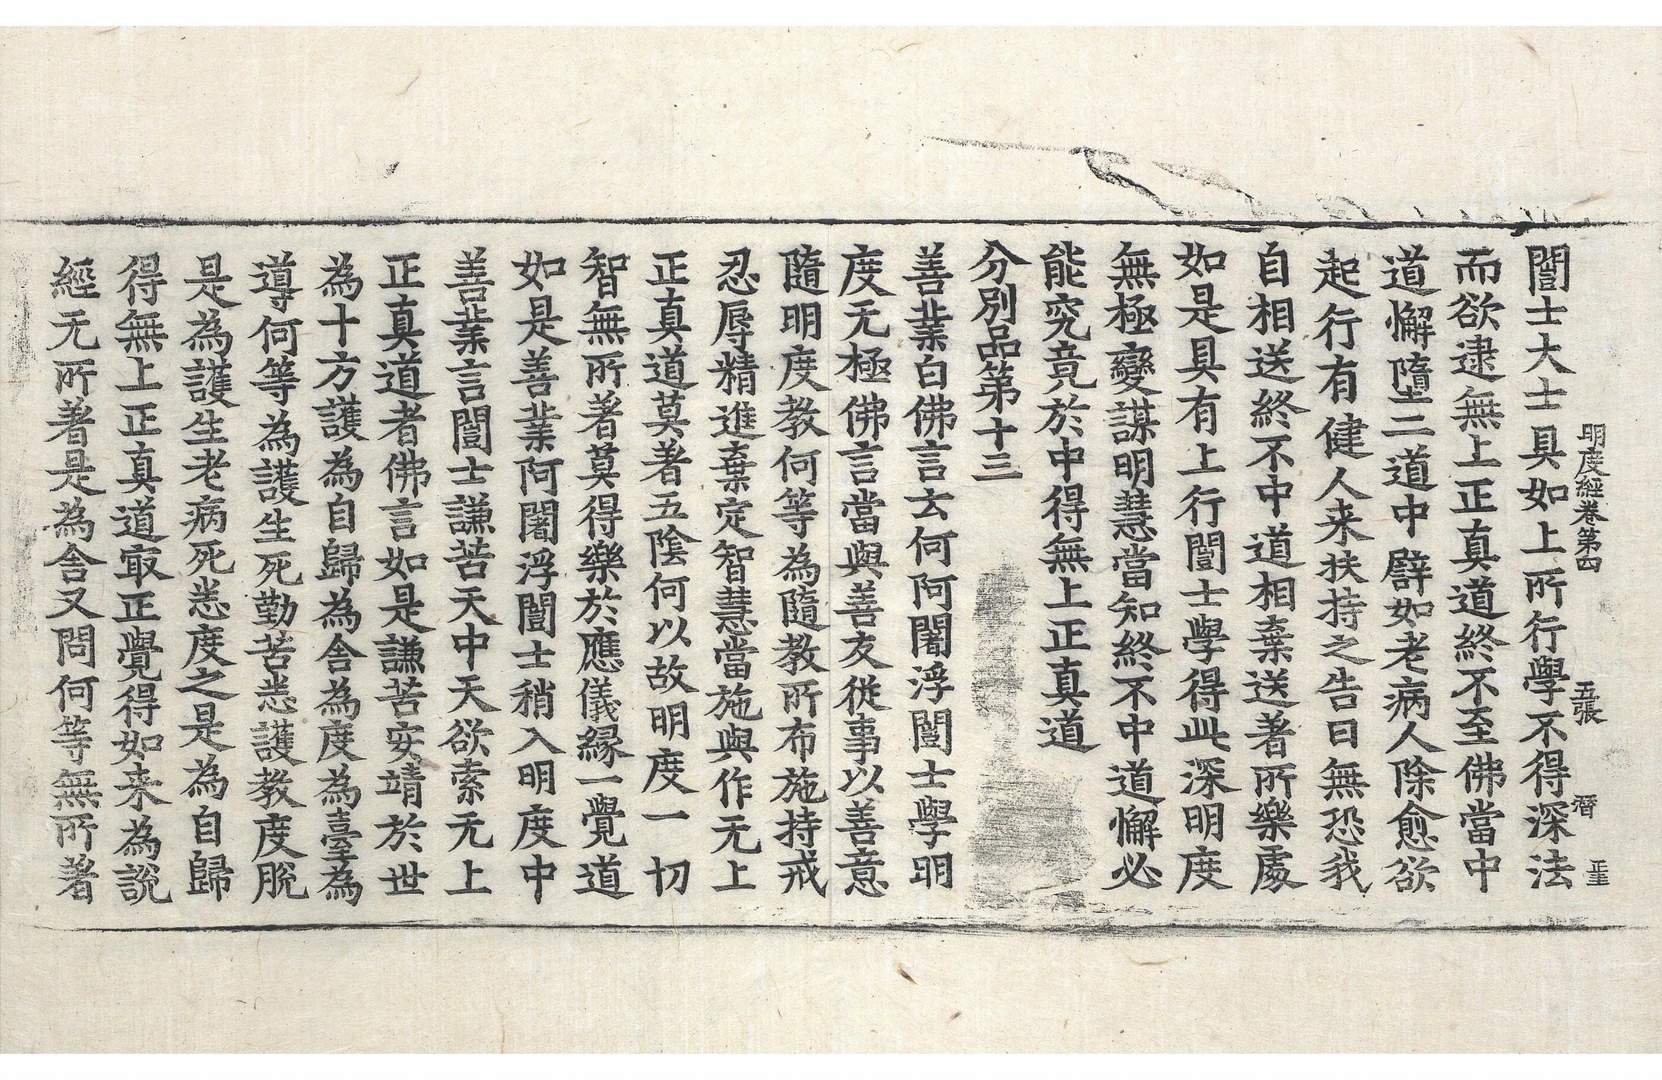 明度經卷第四　五張　㬜　正圭
闓士大士具如上所行學不得深法
而欲逮無上正真道終不至佛當中
道懈墮二道中譬如老病人除愈欲
起行有健人来扶持之告曰無恐我
自相送終不中道相棄送著所樂處
如是具有上行闓士學得此深明度
無極變謀明慧當知終不中道懈必
能究竟於中得無上正真道
分別品第十三
善業白佛言云何阿闍浮闓士學明
度无極佛言當與善友從事以善意
隨明度教何等為隨教所布施持戒
忍辱精進棄定智慧當施與作无上
正真道莫著五陰何以故明度一切
智無所著莫得樂於應儀縁一覺道
如是善業阿闍浮闓士稍入明度中
善業言闓士謙苦天中天欲索无上
正真道者佛言如是謙苦安靖於世
為十方護為自歸為舍為度為臺為
導何等為護生死勤苦恙護教度脫
是為護生老病死恙度之是為自歸
得無上正真道㝡正覺得如来為說
經无所著是為舍又問何等無所著